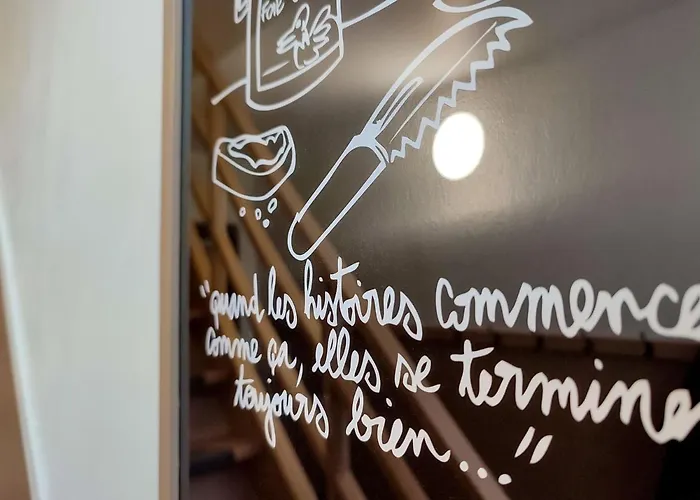 "quand les histoires commence
comme ça, elles se termine
toujours bien..."